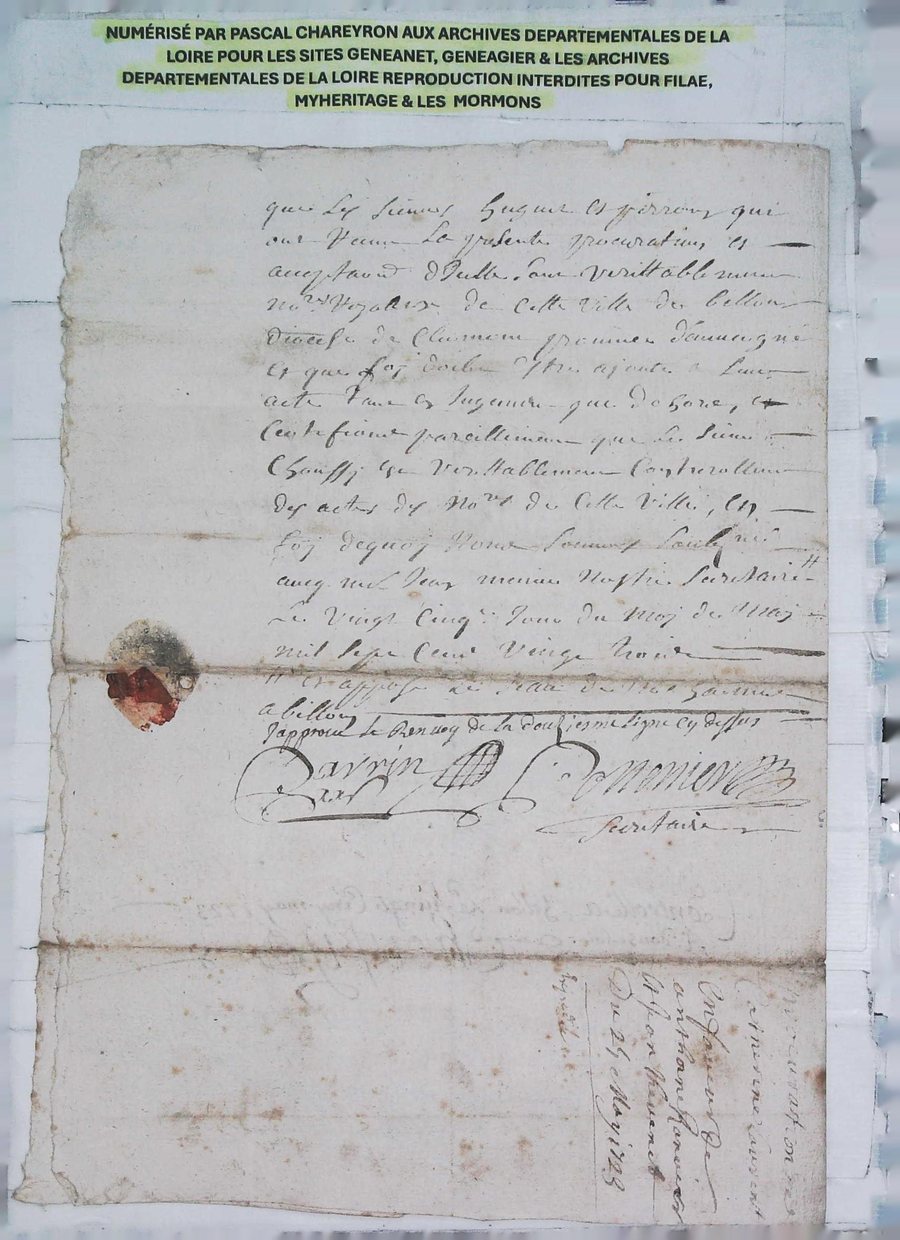 NUMÉRISÉ PAR PASCAL CHAREYRON AUX ARCHIVES DEPARTEMENTALES DE LA
LOIRE POUR LES SITES GENEANET, GENEAGIER & LES ARCHIVES
DEPARTEMENTALES DE LA LOIRE REPRODUCTION INTERDITES POUR FILAE,
MYHERITAGE & LES MORMONS
que les sieurs huguet et qui
ont la presente procuration et
sont verittablement
no.res Royaux de cette ville de billom
diocese de Clermont province d'auvergne
et que foy doibt estre ajoutée a leurs
actes tant en Jugement que dehors, et
Certifions pareillement que le sieur
verittablement Controlleur
des actes des No.res de cette ville, en
foy dequoy Nous sommes soubsigné
avec nostre secretaire //
Le vingt cinq.e Jour du moy de May
mil sept cent vingt trois
// et apposé le seau de
a billom
Japprouve le Renvoy de la douziesme ligne cy dessus
secretaire
procuration de
Caterine Laurent
en faveur de
anthoine
Thevenet
Du 25 May 1723